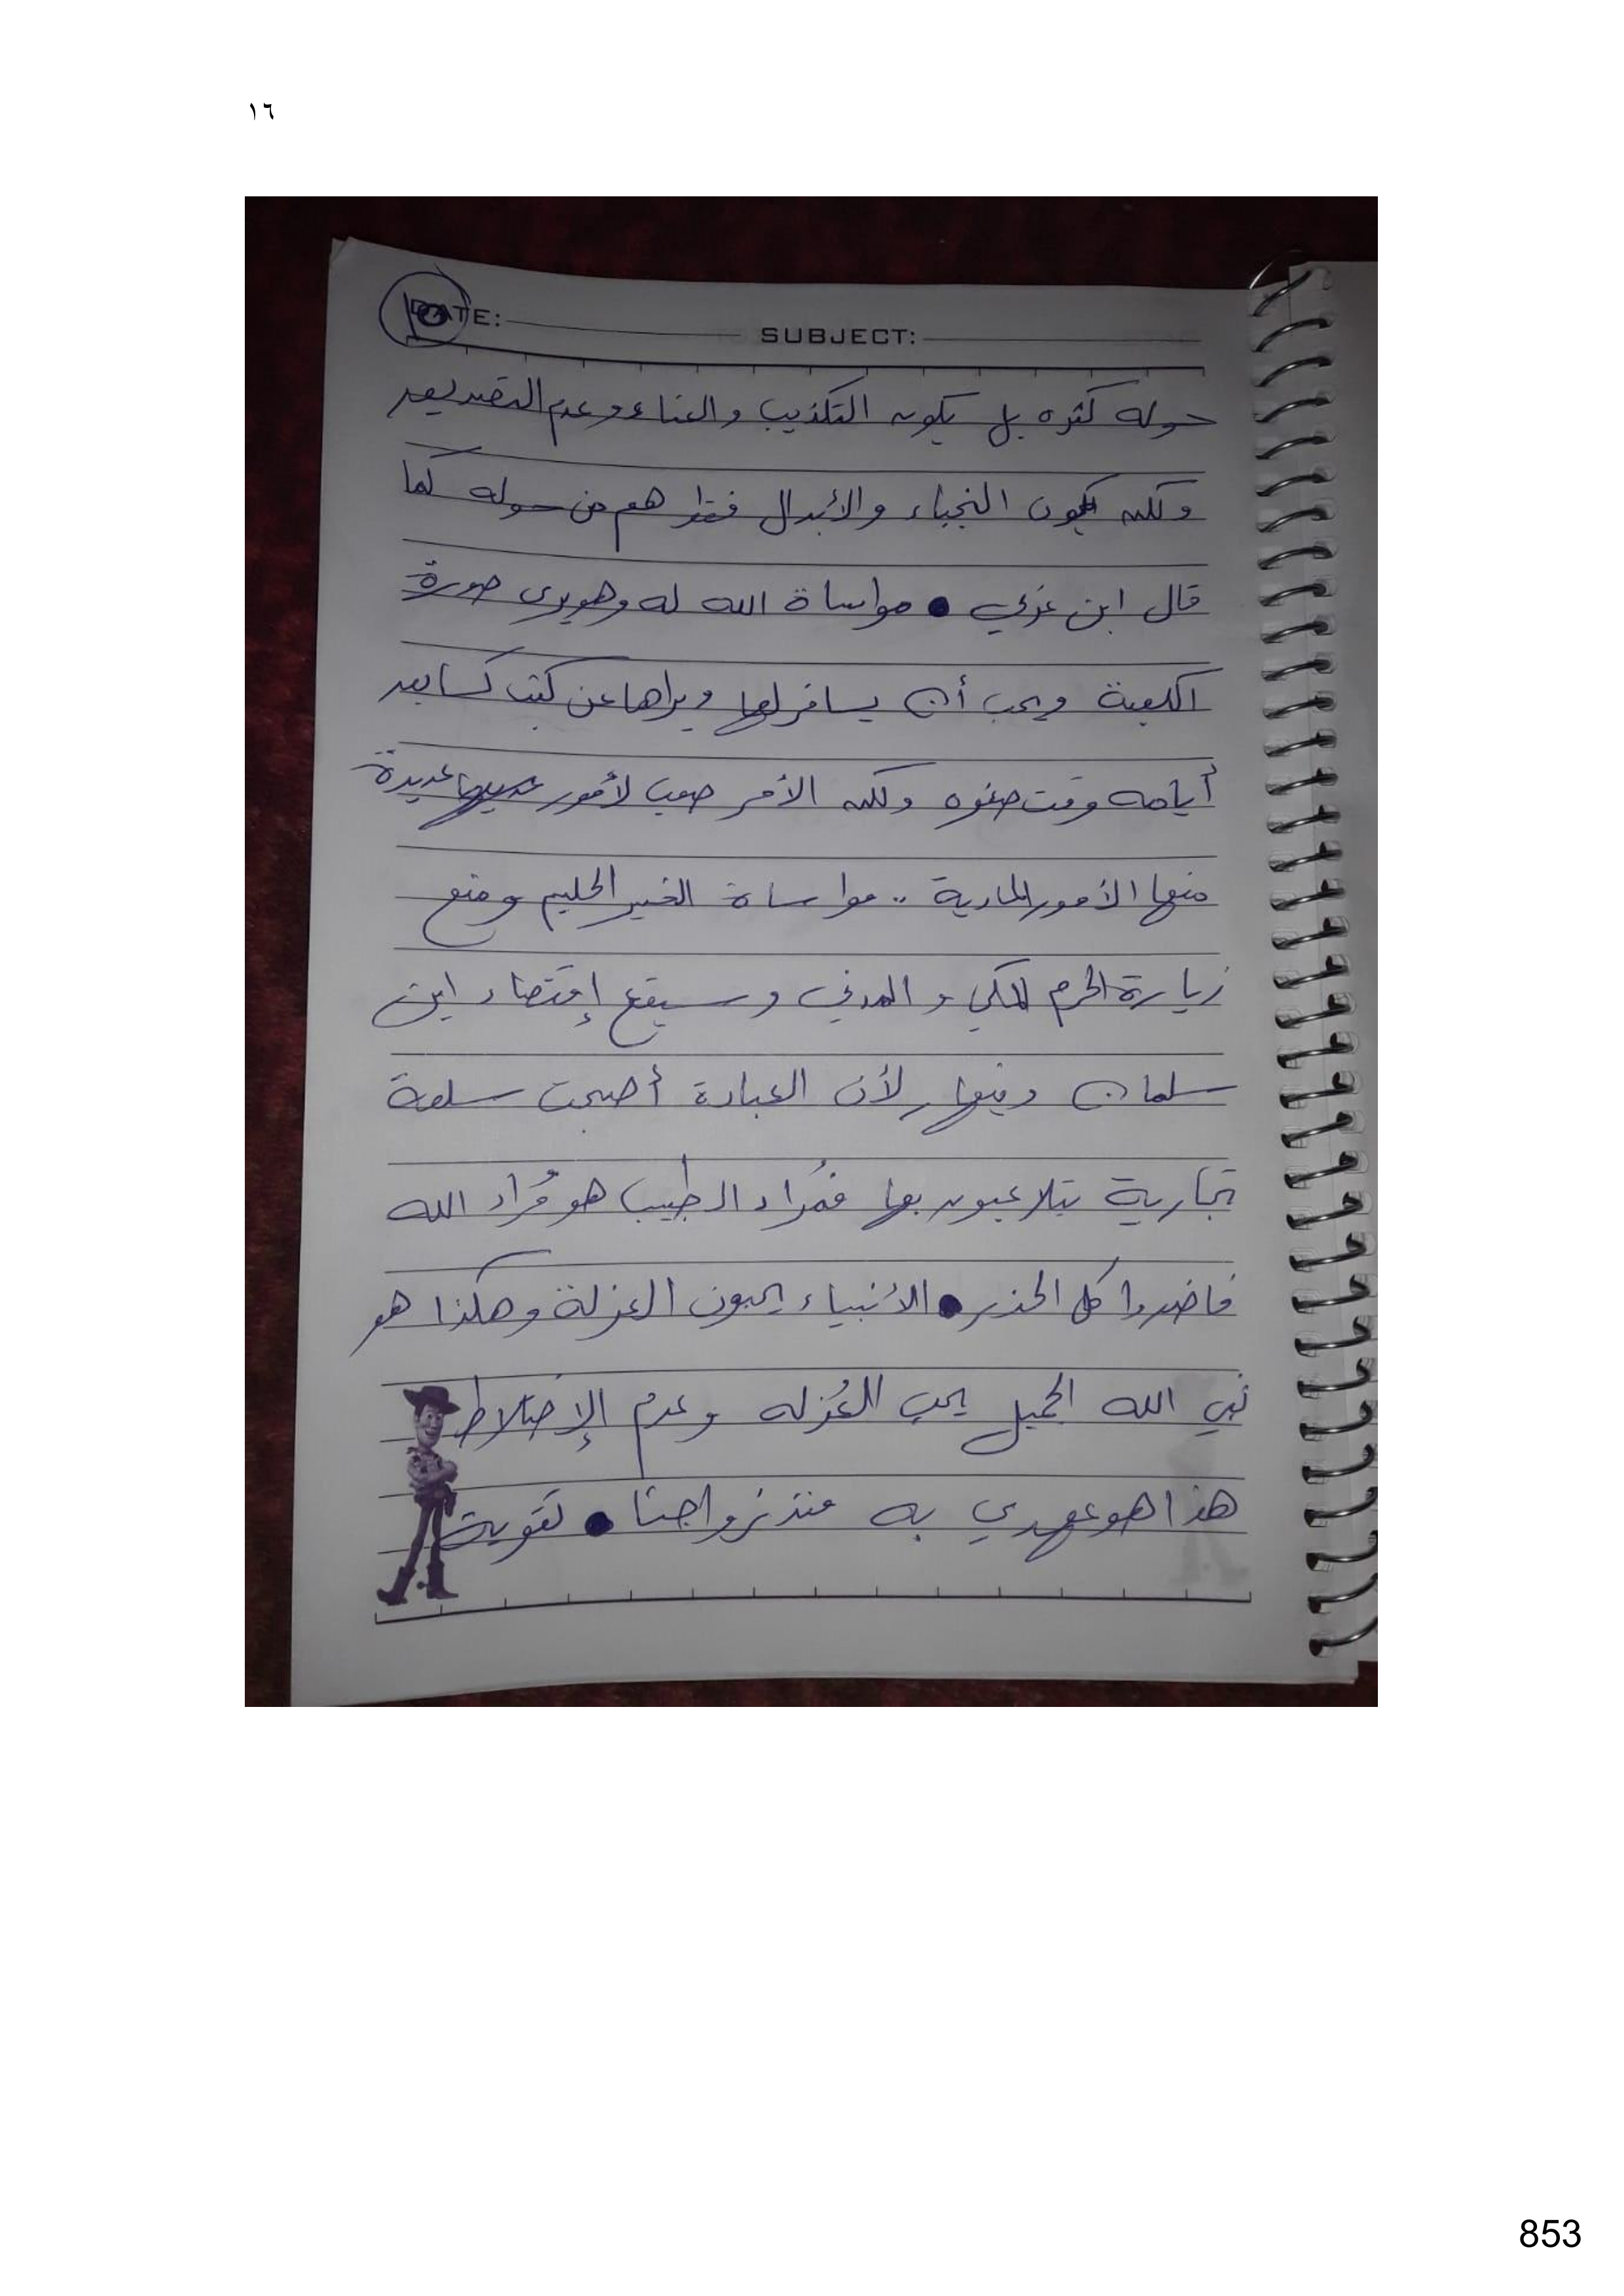 ١٦
10
DATE: SUBJECT:
حوله كثره بل يكون التكذيب والعناء وعدم التصديق
ولكن يكون النجباء والأبدال فقط هم من حوله كما
قال ابن عربي • مواساة الله له وهو يرى صورة
الكعبة ويحب أن يسافر لها ويراها عن كثب كسابق
أيامه وقت صغره ولكن الأمر صعب لأمور عديدة
منها الأمور المادية .. مواساة الخبير الحليم ومنع
زيارة الحرم المكي والمدني وسيقع إقتصاد ابن
سلمان وينهار لأن العبادة أصبحت سلعة
تجارية يتلاعبون بها فمُراد الطبيب هو مُراد الله
فاحذروا كل الحذر • الأنبياء يحبون العزلة وهكذا هو
نبي الله الجميل يحب العُزله وعدم الإختلاط
هذا هو عهدي به منذ زواجنا • تقوية
853